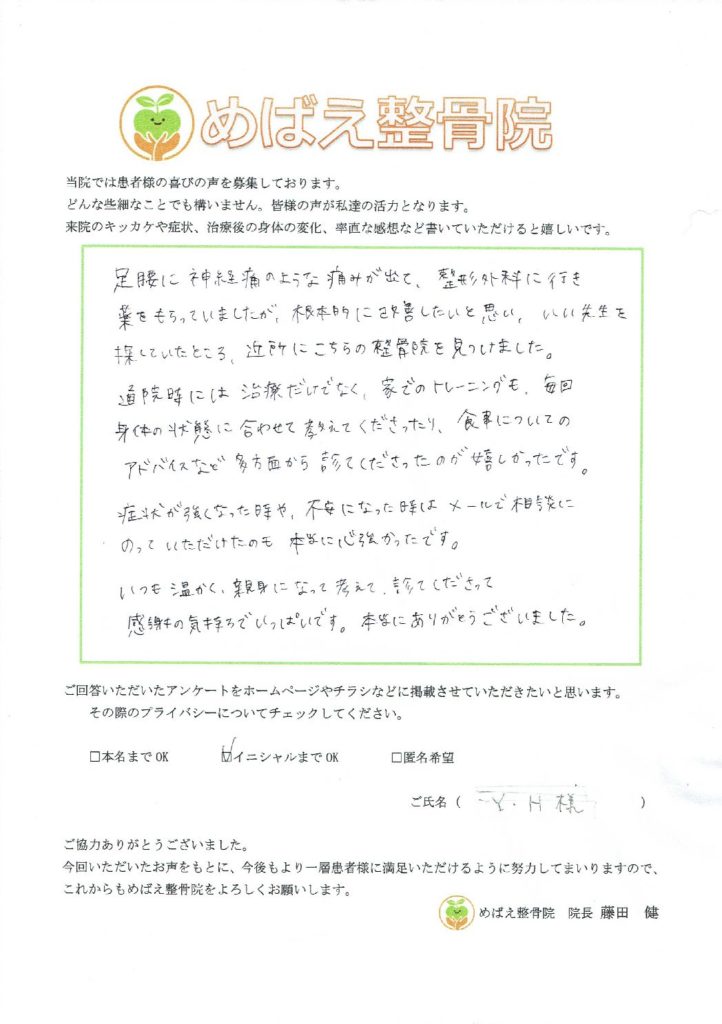 めばえ整骨院
当院では患者様の喜びの声を募集しております。
どんな些細なことでも構いません。皆様の声が私達の活力となります。
来院のキッカケや症状、治療後の身体の変化、率直な感想など書いていただけると嬉しいです。
足腰に神経痛のような痛みが出て、整形外科に行き
薬をもらっていましたが、根本的に改善したいと思い、いい先生を
探していたところ、近所にこちらの整骨院を見つけました。
通院時には治療だけでなく、家でのトレーニングも、毎回
身体の状態に合わせて教えてくださったり、食事についての
アドバイスなど多方面から診てくださったのが嬉しかったです。
症状が強くなった時や、不安になった時はメールで相談に
のっていただけたのも本当に心強かったです。
いつも温かく、親身になって考えて、診てくださって
感謝の気持ちでいっぱいです。本当にありがとうございました。
ご回答いただいたアンケートをホームページやチラシなどに掲載させていただきたいと思います。
その際のプライバシーについてチェックしてください。
□本名までOK ☑イニシャルまでOK □匿名希望
ご氏名（ Y・H様 ）
ご協力ありがとうございました。
今回いただいたお声をもとに、今後もより一層患者様に満足いただけるように努力してまいりますので、
これからもめばえ整骨院をよろしくお願いします。
めばえ整骨院 院長 藤田 健